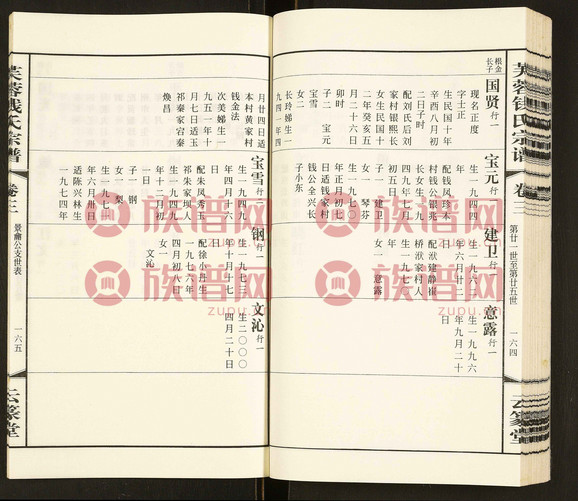 芙蓉钱氏宗谱
卷三
第廿一世至第廿五世
一六四
云篆堂
根金长子
国贤行一
现名正度
字士正
生民国十年
辛酉八月初
二日子时
配刘氏后刘
家村银熙长
女生民国十
二年癸亥五
月二十六日
卯时
子二 宝元
宝雪
女二
长玲娣生一
九四四年
宝元行一
生一九四四
年
配钱风珍本
村钱公银兆
长女生一九
四九年二月
初五日
子一 建卫
女一 琴芬
生一九七〇
日适钱家村
钱公全兴长
子小东
建卫行一
生一九六二
年六月廿二
日
配洑建静崔
桥洑家村人
生一九七二
年
女一 意露
意露行一
生一九九六
年九月二十
日
月廿四日适
本村黄家村
钱金法
次美娣生一
九五一年十
月七日适玉
祁秦家宕秦
焕昌
宝雪行二
生一九四九
年四月十六
日
配朱凤秀玉
祁朱家坝人
生一九四九
年十二月初
一日
子一 钢
女一 梨
生一九七一
年六月卅日
适陈兴林生
一九七四年
钢行一
生一九七三
年十月十七
日
配徐小丹生
一九七六年
四月初六日
女一 文沁
文沁行一
生二〇〇〇
四月二十日
芙蓉钱氏宗谱
卷三
景肃公支世表
一六五
云篆堂
族谱网
zupu.cn